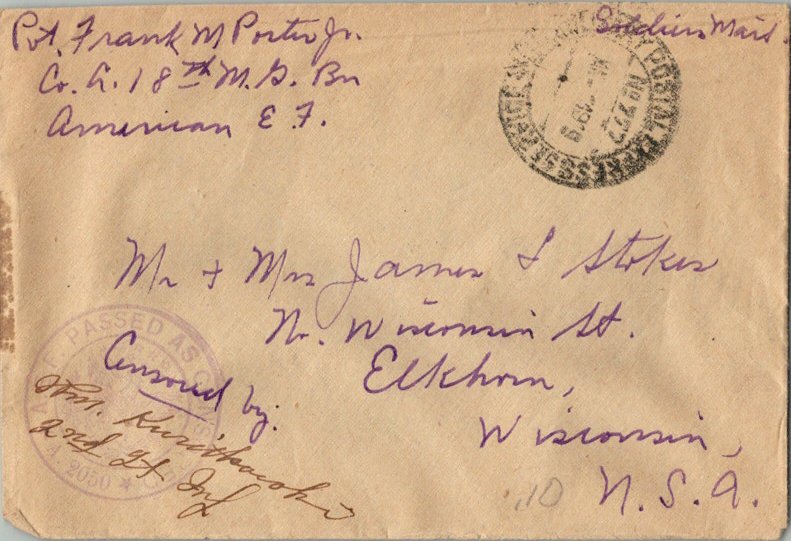 Pvt. Frank M Porter Jr.
Co. A. 18th M. G. Bn
American E. F.
Soldiers Mail.
POSTAL EXPRESS SERVICE
No 727
1919
Mr + Mrs James S Stokes
No. Wisconsin St.
Elkhorn,
Wisconsin,
U. S. A.
Censored by:
2nd Lt Inf
PASSED AS
A. 2050
.10